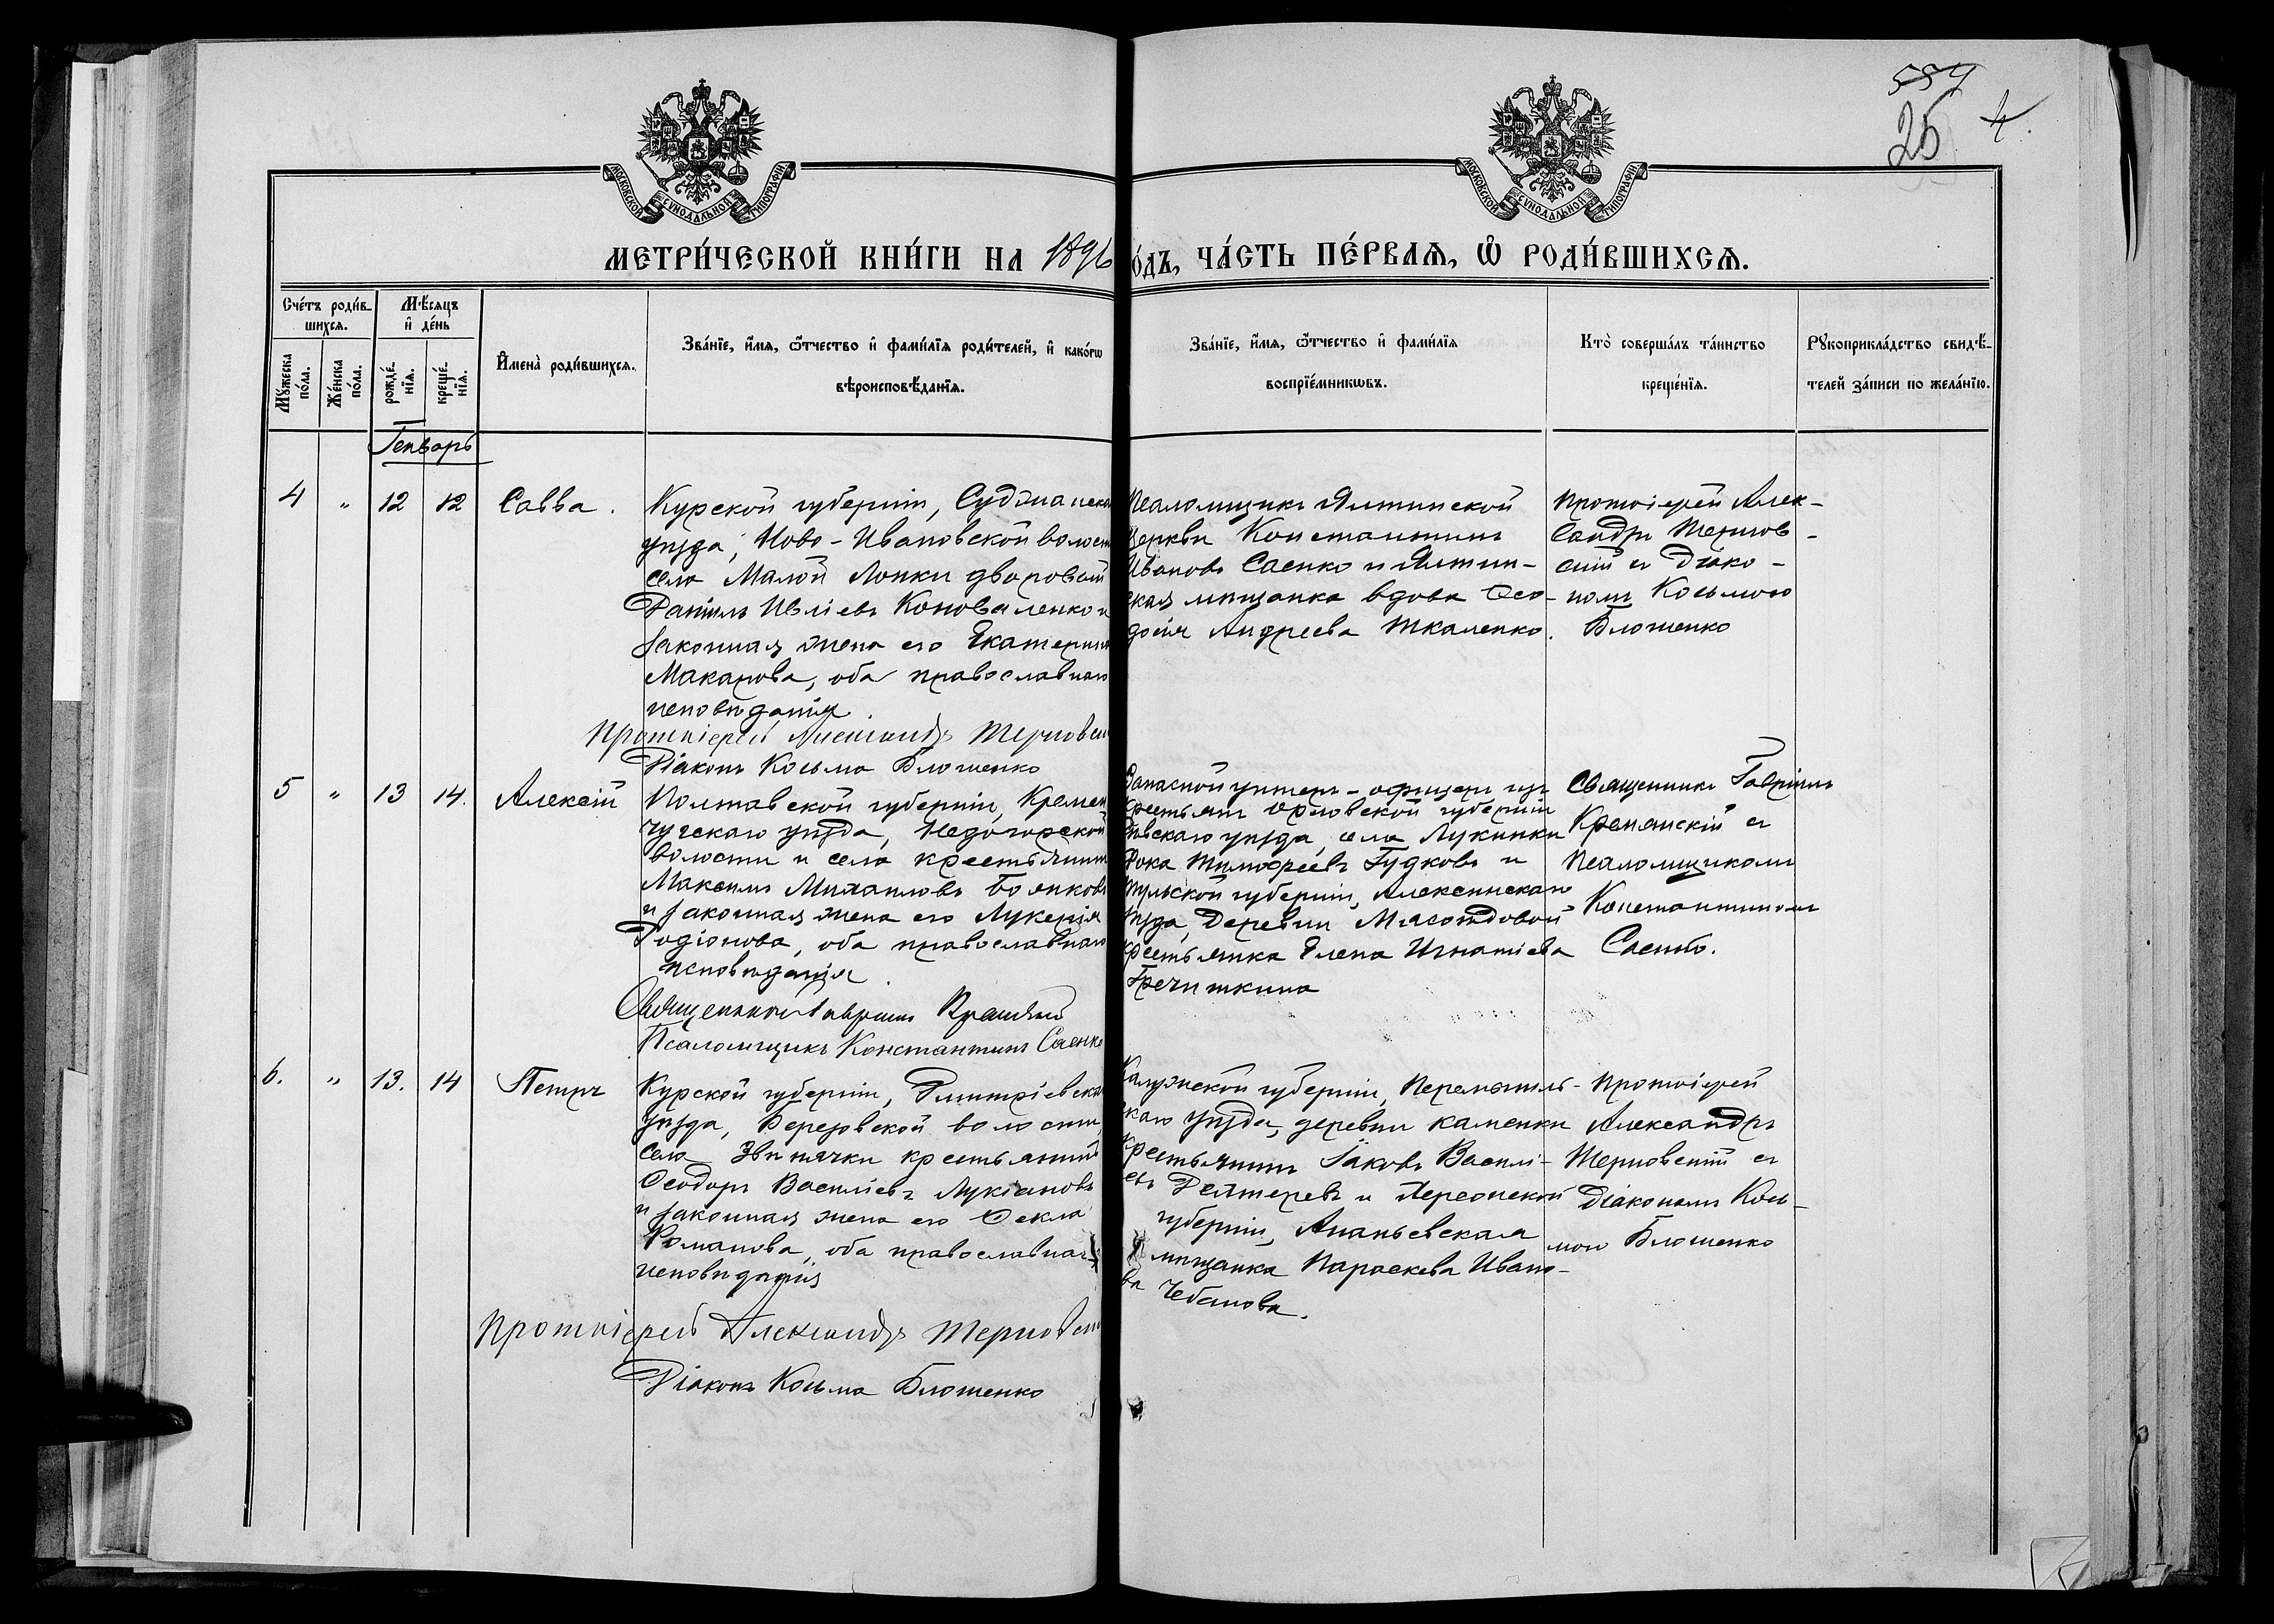 559
25 4.
МОСКОВСКОЙ СѴНОДАЛЬНОЙ ТИПОГРАФІИ
МОСКОВСКОЙ СѴНОДАЛЬНОЙ ТИПОГРАФІИ
МЕТРИ́ЧЕСКОЙ КНИ́ГИ НА 1896
О́ДЪ, ЧА́СТЬ ПЕ́РВАѦ, Ѡ҆ РОДИ́ВШИХСѦ.
Сче́тъ роди́в-
шихсѧ.
Мѣ́сѧцъ
и҆ де́нь
Мꙋ́жеска по́ла.
Же́нска по́ла.
рожде́-
нїѧ.
креще́-
нїѧ.
И҆мена̀ роди́вшихсѧ.
Зва́нїе, и҆́мѧ, ѻ҆́тчество и҆ фами́лїѧ роди́телей, и҆ како́гѡ
вѣроисповѣ́данїѧ.
Зва́нїе, и҆́мѧ, ѻ҆́тчество и҆ фами́лїѧ
воспрїе́мникѡвъ.
Кто̀ соверша́лъ та́инство
креще́нїѧ.
Рꙋкоприкла́дство свидѣ́-
телей за́писи по жела́нїю.
Генварь
4 " 12 12 Савва.
Курской губерніи, Суджанска
уѣзда, Ново-Ивановской волост
села Малой Локни дворовый
Даніилъ Ивліевъ Коноваленко и
законная жена его Екатерина
Макарова, оба православнаго
исповѣданія.
Протоіерей Александръ Терновск
Діаконъ Косьма Блошенко
Псаломщикъ Ялтинской
Церкви Константинъ
Ивановъ Саенко и Ялтин-
ская мѣщанка вдова Ѳео-
досія Андреева Ткаленко.
Протоіерей Алек-
сандръ Тернов-
скій съ Діако-
номъ Косьмою
Блошенко
5 " 13 14. Алексій
Полтавской губерніи, Кремен
чугскаго уѣзда, Недогорской
волости и села крестьянинъ
Максимъ Михаиловъ Боянковъ
и законная жена его Лукерія
Родіонова, оба православнаго
исповѣданія.
Священникъ Гавріилъ
Псаломщикъ Константинъ Саенко
Запасной унтеръ-офицеръ изъ
крестьянъ Орловской губерніи
уѣзда, села Лукинки
Фока Тимофеевъ Гудковъ и
Тульской губерніи, Алексинскаго
уѣзда, Деревни Мясоѣдовой
крестьянка Елена Игнатіева
Гречишкина
Священникъ Гавріилъ
Кранянскій съ
Псаломщикомъ
Константиномъ
Саенко.
6. " 13. 14 Петръ
Курской губерніи, Дмитріевска
уѣзда, Березовской волости,
села Звѣнячки крестьянинъ
Ѳеодоръ Василіевъ Лукіановъ
и законная жена его Ѳекла
Романова, оба православнаго
исповѣданія
Протоіерей Александръ Терновск
Діаконъ Косьма Блошенко
Калужской губерніи, Перемышль-
скаго уѣзда, деревни Каменки
крестьянинъ Іаковъ Василі-
евъ Дехтеревъ и Херсонской
губерніи, Ананьевская
мѣщанка Параскева Ивано-
ва Чебанова.
Протоіерей
Александръ
Терновскій съ
Діакономъ Кось-
мою Блошенко